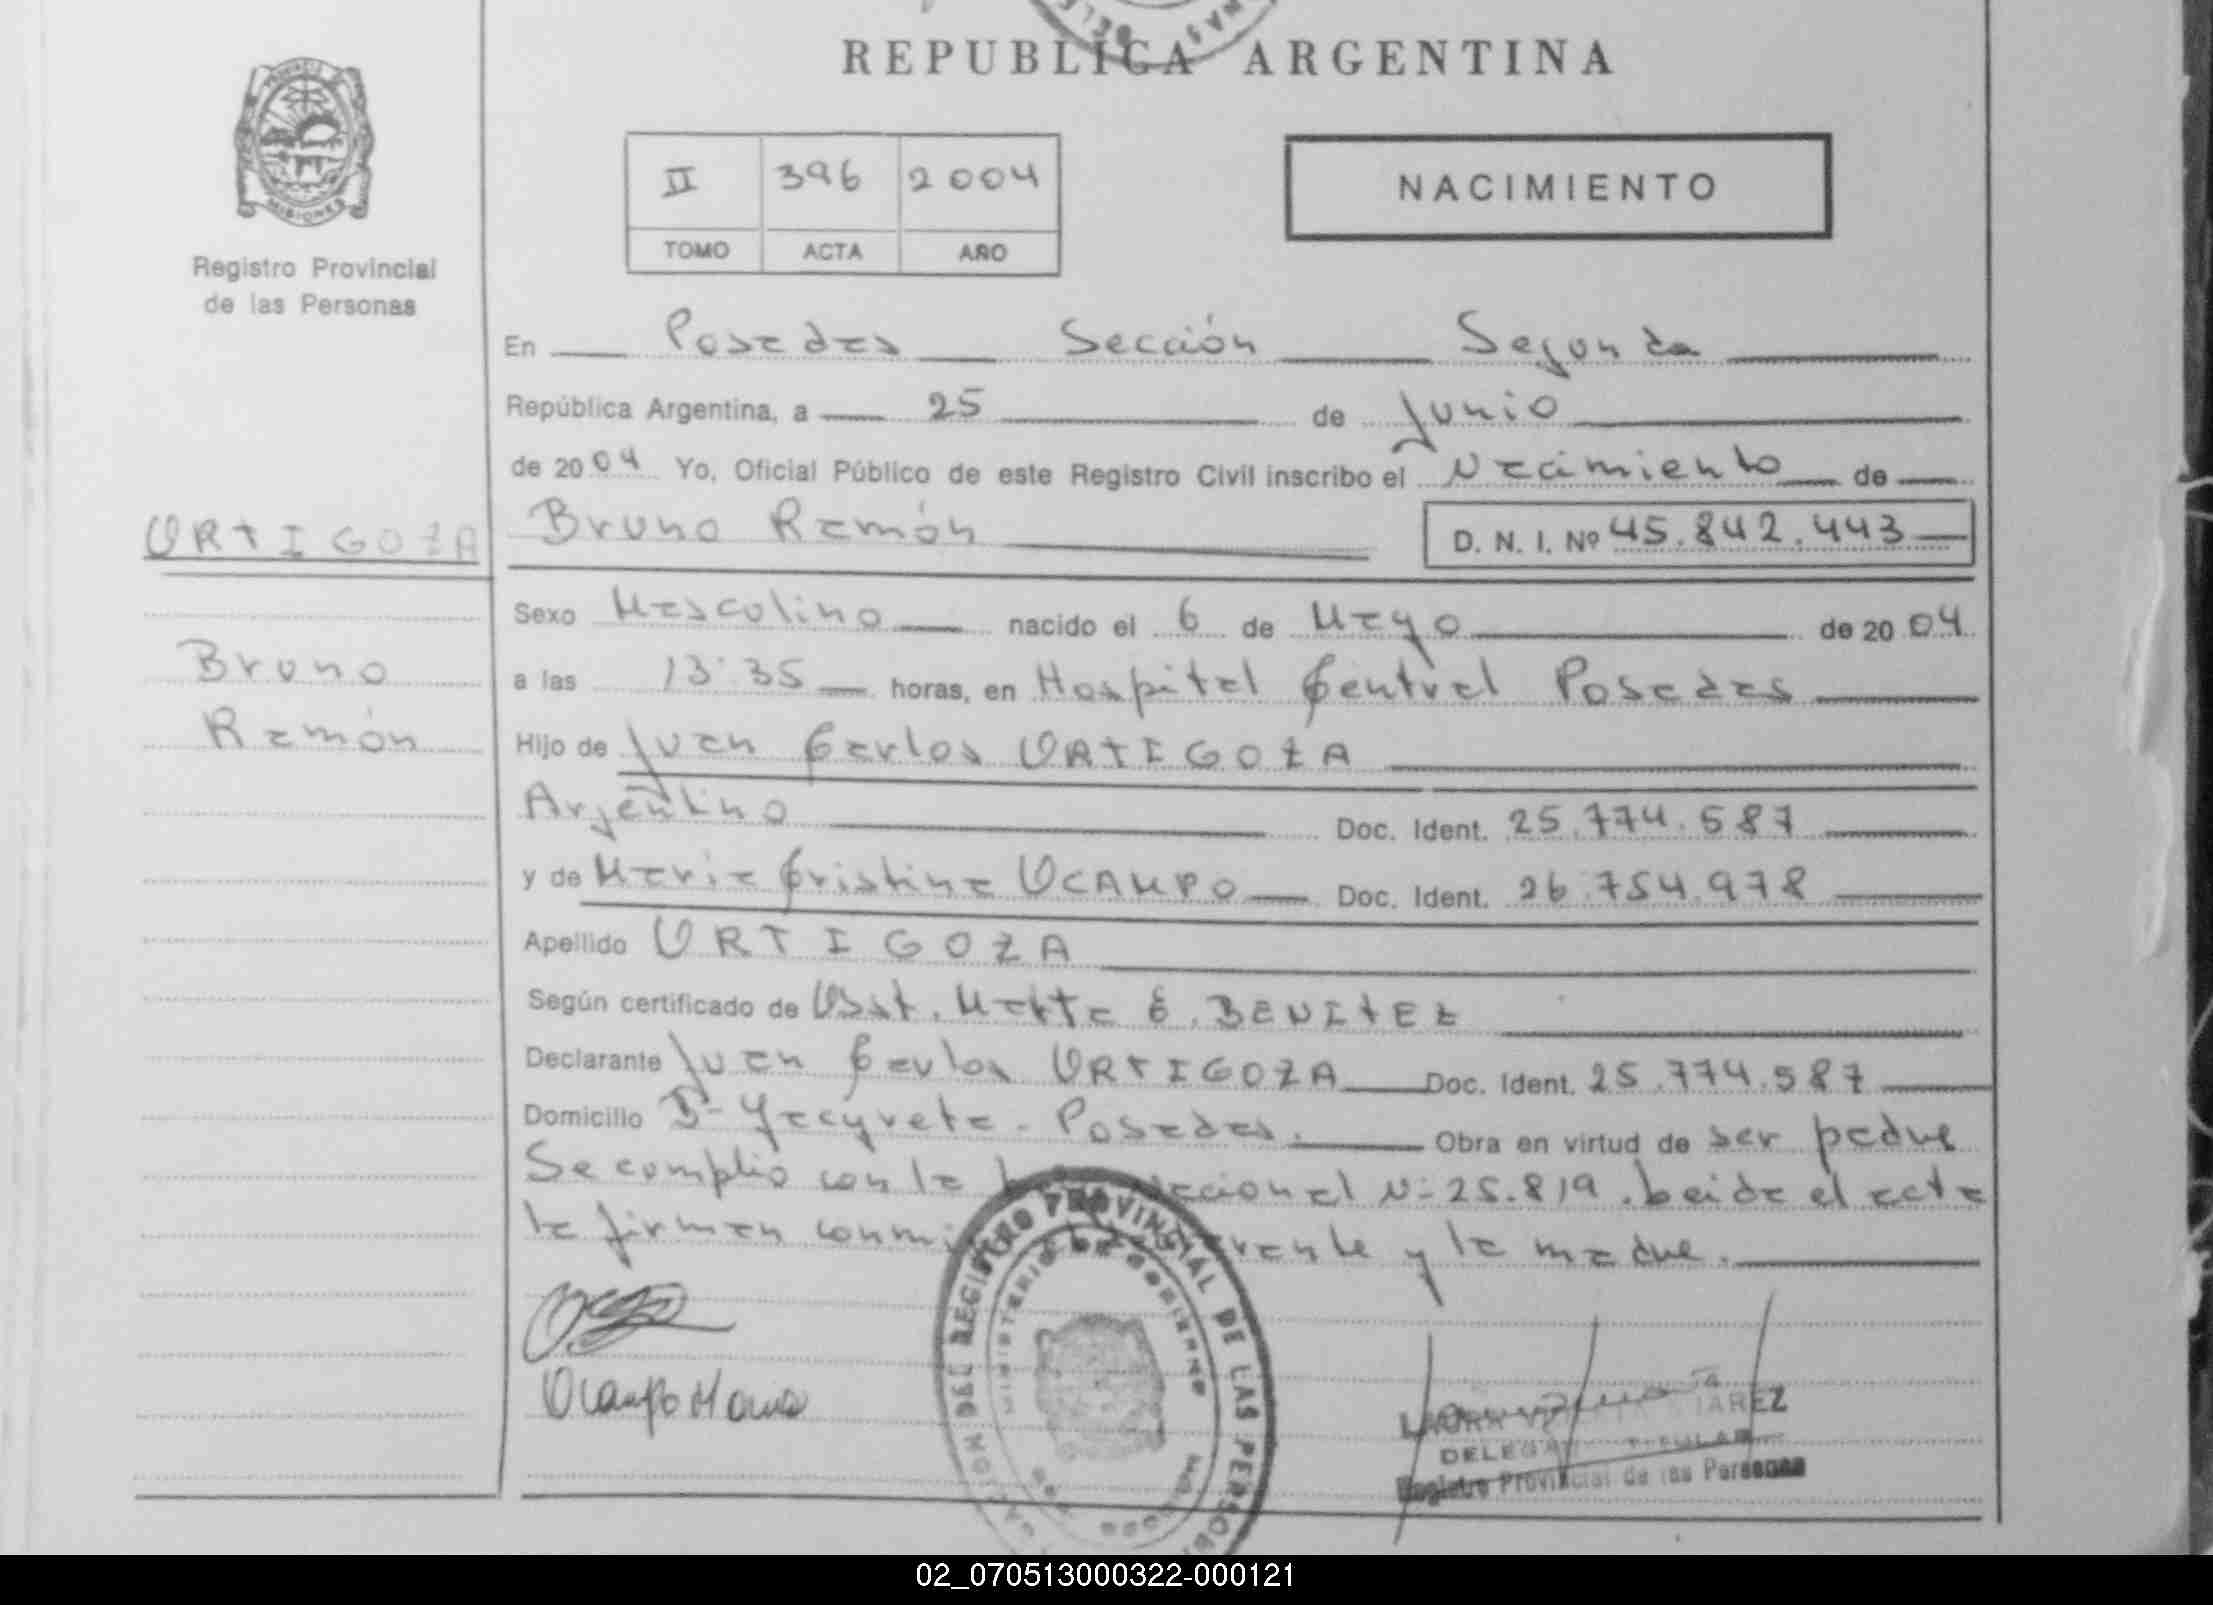 REPUBLICA ARGENTINA
MISIONES
Registro Provincial
de las Personas
II 396 2004
TOMO ACTA AÑO
NACIMIENTO
En Posadas Sección Segunda
República Argentina, a 25 de Junio
de 2004 Yo, Oficial Público de este Registro Civil inscribo el Nacimiento de
URTIGOZA
Bruno Ramón
Bruno Ramón D. N. I. Nº 45.842.443
Sexo Masculino nacido el 6 de Mayo de 2004
a las 13:35 horas, en Hospital Central Posadas
Hijo de Juan Carlos URTIGOZA
Argentino Doc. Ident. 25.774.587
y de Maria Cristina OCAMPO Doc. Ident. 26.754.978
Apellido URTIGOZA
Según certificado de Obst. E. BENITEZ
Declarante Juan Carlos URTIGOZA Doc. Ident. 25.774.587
Domicilio Bº Yacyreta - Posadas. Obra en virtud de ser padre
Se cumplio con la Nacional Nº 25.819. Leida el acta
la firman y la madre.
Ocampo Maria
REGISTRO PROVINCIAL DE LAS PERSONAS
MINISTERIO DE GOBIERNO
DELEGADA TITULAR
Registro Provincial de las Personas
02_070513000322-000121